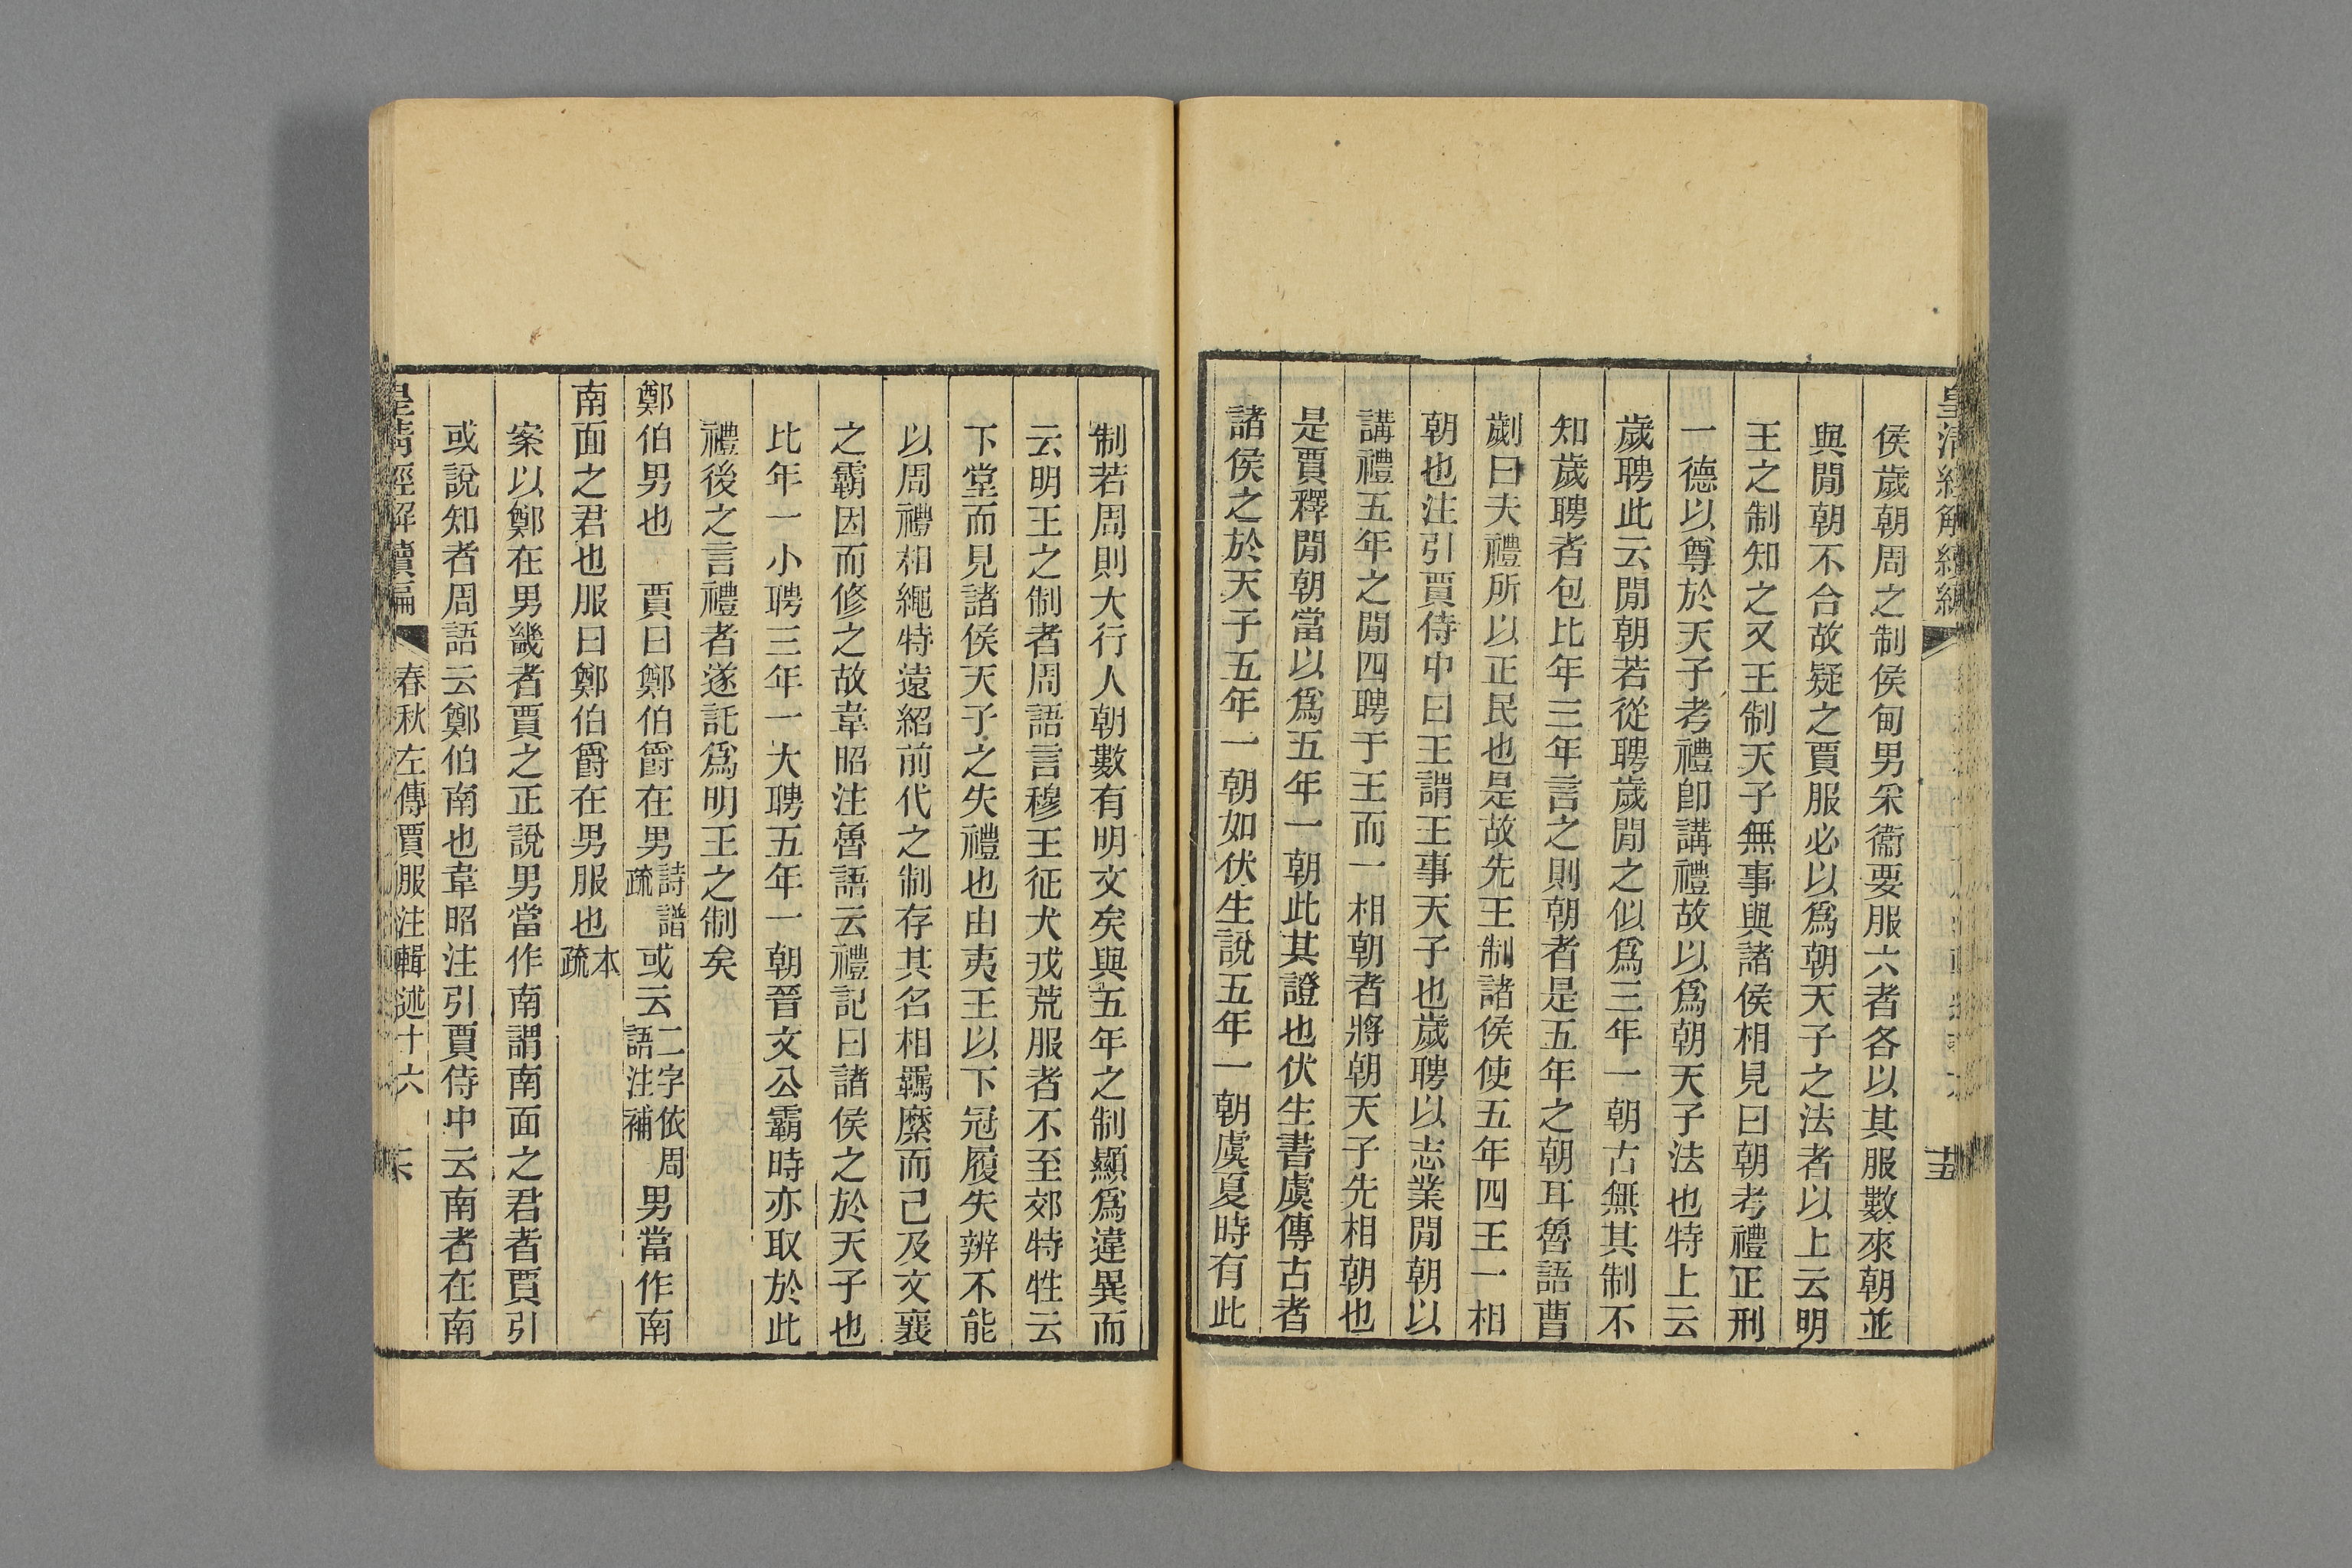 皇清經解續編
十五
侯歲朝周之制侯甸男采衞要服六者各以其服數來朝並
與閒朝不合故疑之賈服必以爲朝天子之法者以上云明
王之制知之又王制天子無事與諸侯相見曰朝考禮正刑
一德以尊於天子考禮卽講禮故以爲朝天子法也特上云
歲聘此云閒朝若從聘歲閒之似爲三年一朝古無其制不
知歲聘者包比年三年言之則朝者是五年之朝耳魯語曹
劌曰夫禮所以正民也是故先王制諸侯使五年四王一相
朝也注引賈侍中曰王謂王事天子也歲聘以志業閒朝以
講禮五年之閒四聘于王而一相朝者將朝天子先相朝也
是賈釋閒朝當以爲五年一朝此其證也伏生書虞傳古者
諸侯之於天子五年一朝如伏生說五年一朝虞夏時有此
制若周則大行人朝數有明文矣與五年之制顯爲違異而
云明王之制者周語言穆王征犬戎荒服者不至郊特牲云
下堂而見諸侯天子之失禮也由夷王以下冠履失辨不能
以周禮相繩特遠紹前代之制存其名相羈縻而已及文襄
之霸因而修之故韋昭注魯語云禮記曰諸侯之於天子也
比年一小聘三年一大聘五年一朝晉文公霸時亦取於此
禮後之言禮者遂託爲明王之制矣
鄭伯男也　賈曰鄭伯爵在男詩譜疏或云二字依周語注補男當作南
南面之君也服曰鄭伯爵在男服也本疏
案以鄭在男畿者賈之正說男當作南謂南面之君者賈引
或說知者周語云鄭伯南也韋昭注引賈侍中云南者在南
皇清經解續編
春秋左傳賈服注輯述十六